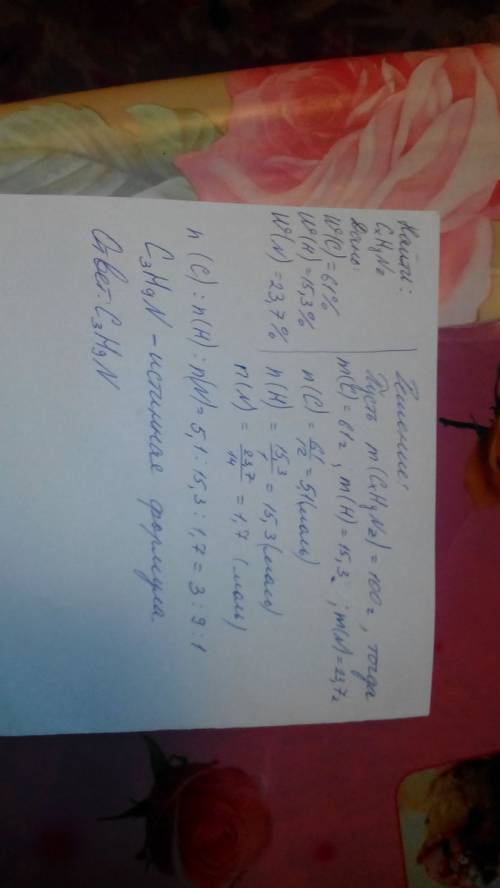 Найти:
CxHyNz
Дано:
W(C)=61%
W(H)=15,3%
W(N)=23,7%
Решение:
Пусть m(CxHyNz)=100г, тогда
m(C)=61г; m(H)=15,3г; m(N)=23,7г
n(C)=61/12=5,1(моль)
n(H)=15,3/1=15,3(моль)
n(N)=23,7/14=1,7 (моль)
n(C):n(H):n(N)=5,1:15,3:1,7=3:9:1
C₃H₉N - истинная формула.
Ответ: C₃H₉N